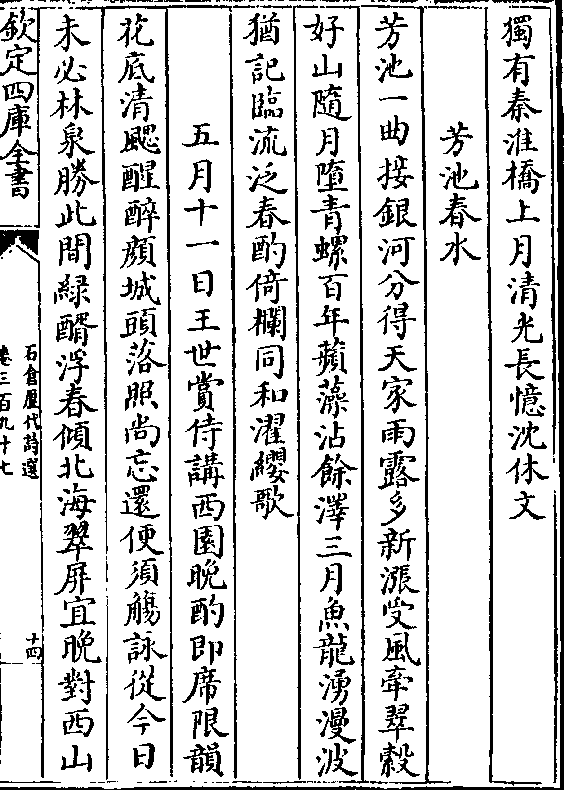 獨有秦淮橋上月清光長憶沈休文
芳池春水
芳池一曲接銀河分得天家雨露多新漲受風牽翠縠
好山隨月墮青螺百年蘋藻沾餘澤三月魚龍湧漫波
猶記臨流泛春酌倚欄同和濯纓歌
五月十一日王世賞侍講西園晚酌即席限韻
花底清颸醒醉顔城頭落照尚忘還便須觴詠從今日
未必林泉勝此間緑醑浮春傾北海翠屏宜晚對西山
欽定四庫全書
石倉歷代詩選
卷三百九十七
十四